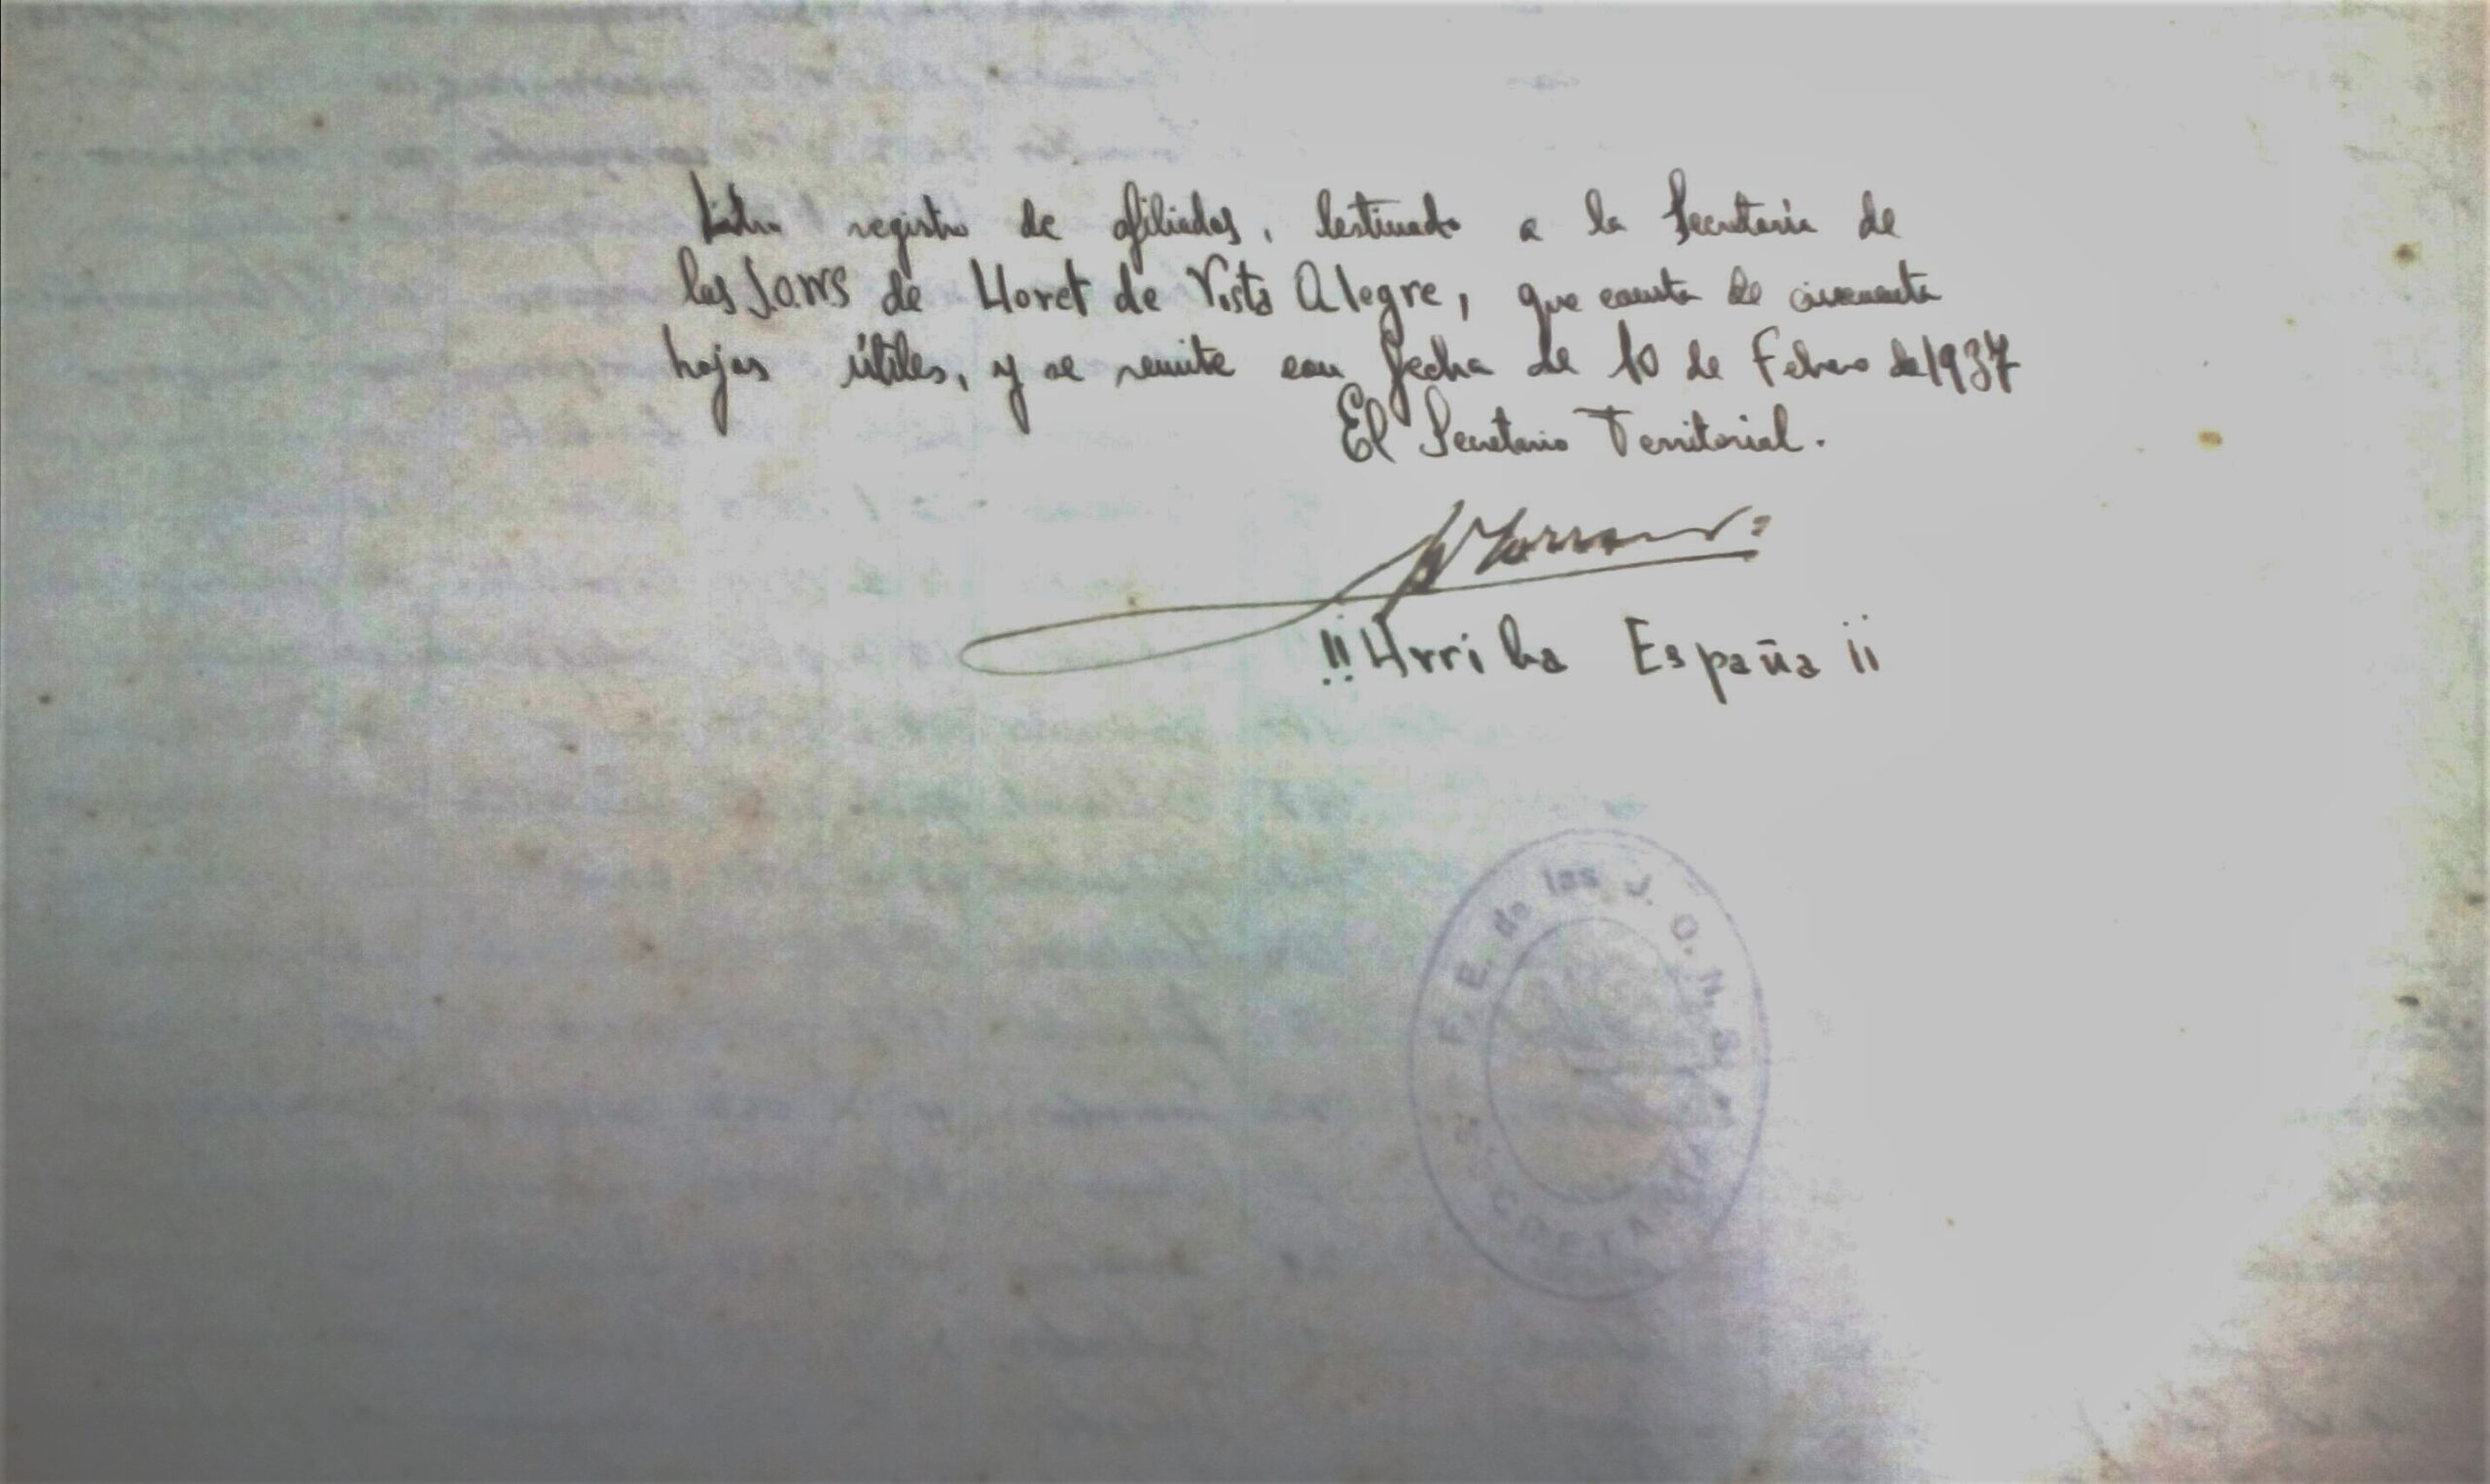 Libro registro de afiliados, destinado a la Secretaría de
las J.O.N.S de Lloret de Vista Alegre, que consta de cincuenta
hojas útiles, y se remite con fecha de 10 de Febrero de 1937
El Secretario Territorial.
!!Arriba España ¡¡
F. E. de las J. O. N. S.
SECRETARIA